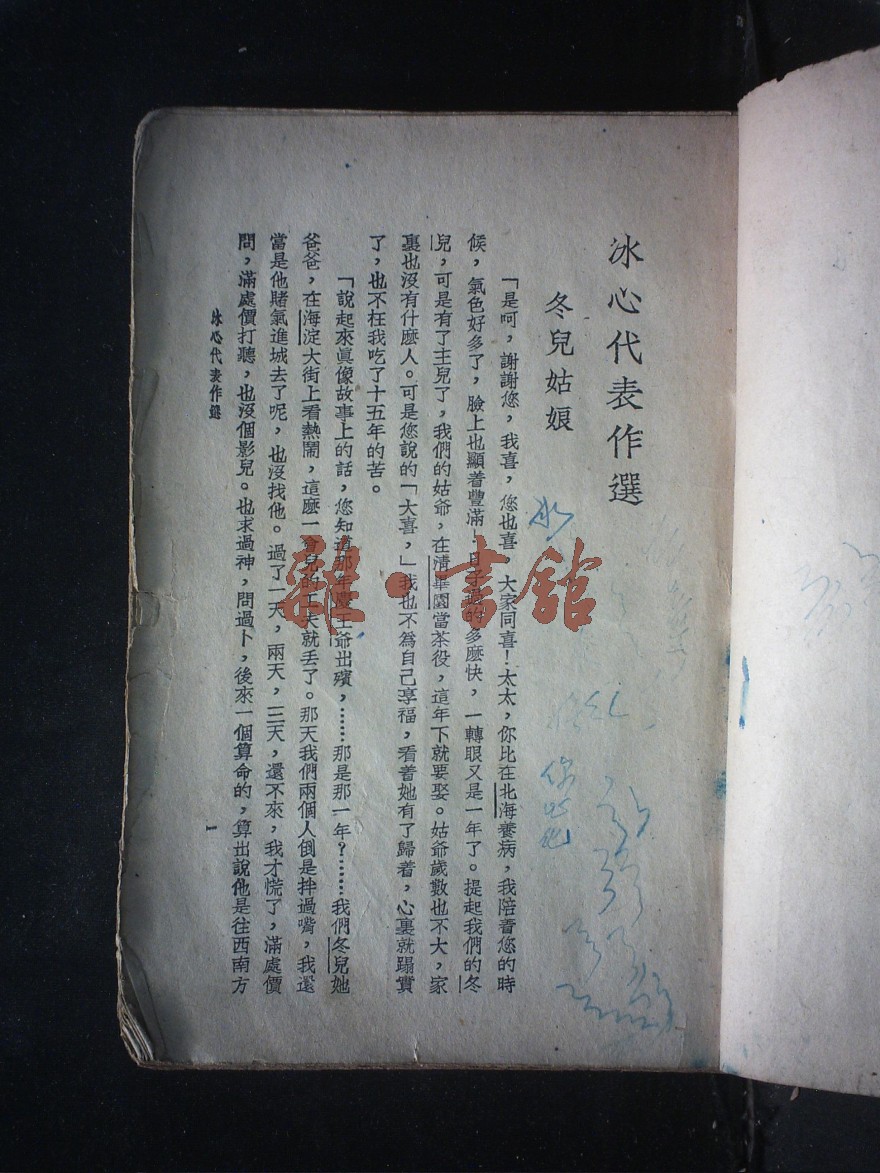 冰心代表作選
冬兒姑娘
「是呵，謝謝您，我喜，您也喜，大家同喜！太太，你比在北海養病，我陪着您的時
候，氣色好多了，臉上也顯着豐滿！日子過的多麼快，一轉眼又是一年了。提起我們的冬
兒，可是有了主兒了，我們的姑爺，在清華園當茶役，這年下就要娶。姑爺歲數也不大，家
裏也沒有什麼人。可是您說的「大喜，」我也不為自己享福，看着她有了歸着，心裏就蹋實
了，也不枉我吃了十五年的苦。
「說起來眞像故事上的話，您知道那年慶王爺出殯，……那是那一年？……我們冬兒她
爸爸，在海淀大街上看熱鬧，這麼一會兒的工夫就丟了。那天我們兩個人倒是拌過嘴，我還
當是他賭氣進城去了呢，也沒找他。過了一天，兩天，三天，還不來，我才慌了，滿處價
問，滿處價打聽，也沒個影兒。也求過神，問過卜，後來一個算命的，算出說他是往西南方
冰心代表作選
一
龍·書館
你吃